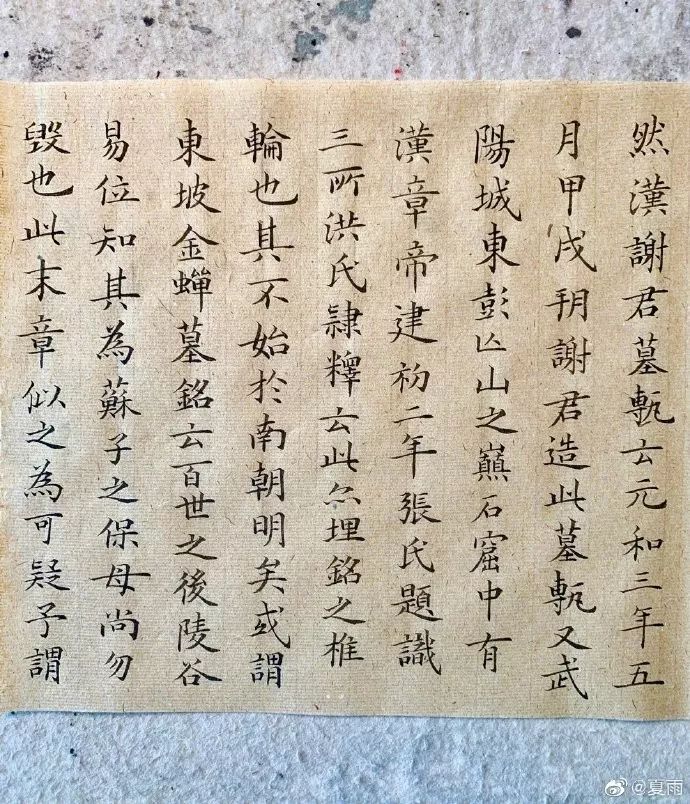 然漢謝君墓甎云元和三年五
月甲戌朔謝君造此墓甎又武
陽城東彭亡山之巔石窟中有
漢章帝建初二年張氏題識
三所洪氏隸釋云此亦埋銘之椎
輪也其不始於南朝明矣或謂
東坡金蟬墓銘云百世之後陵谷
易位知其為蘇子之保母尚勿
毀也此末章似之為可疑予謂
@夏雨